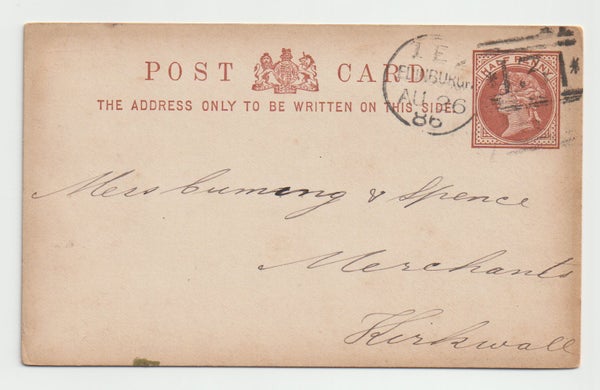 POST CARD
THE ADDRESS ONLY TO BE WRITTEN ON THIS SIDE
HALFPENNY
1 E
EDINBURGH
AU 26
86
Mess Cuming & Spence
Merchants
Kirkwall